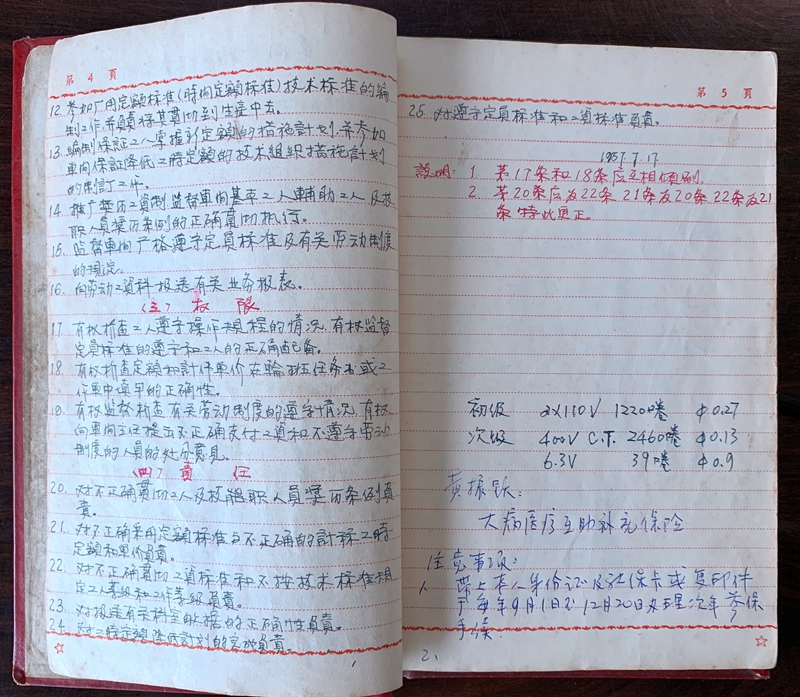 第 4 頁
12. 参加厂用定額标准(時間定額标准)技术标准的編
制工作并負責将其貫切到生産中去。
13. 編制保証工人掌握新定額的措施計划,并参加
車间保証降低工時定額的技术組织措施計划
的制訂工作。
14. 推广奖历工資制監督車间基本工人輔助工人及技
职人員奖历条例的正确貫切执行。
15. 監督車间严格遵守定員标准及有关劳动制度
的規定。
16. 向劳动工資科报送有关业务报表。
(三) 权 限
17. 有权检查工人遵守操作規程的情况,有权監督
定員标准的遵守和工人的正确配备。
18. 有权检查定額和計件單价在輪班任务书或工
作單中填写的正确性。
19. 有权監督检查有关劳动制度的遵守情况,有权
向車间主任提出不正确支付工資和不遵守劳动
制度的人員的处分意見。
(四) 責 任
20. 对不正确貫切工人及技職职人員奖历条例負
責。
21. 对不正确采用定額标准与不正确的計标工時
定額和單价負責。
22. 对不正确貫切工資标准和不按技术标准規
定工人等級和工作等級負責。
23. 对报送有关科室的数据的正确性負責。
24. 对工時定額降低計划的完成負責。
第 5 頁
25. 对遵守定員标准和工資标准負責。
1957.7.17.
説明: 1. 第17条和18条应互相倾倒。
2. 第20条应为22条 21条为20条 22条为21
条 特此更正。
初级 2X110V 1220啳 φ0.27
次级 400V C.T. 2460啳 φ0.13
6.3V 39啳 φ0.9
黄振铁:
大病医疗互助补充保险
注意事项:
1、 带上本人身份证及社保卡或复印件
于每年9月1日至12月20日办理次年参保
手续.
2.